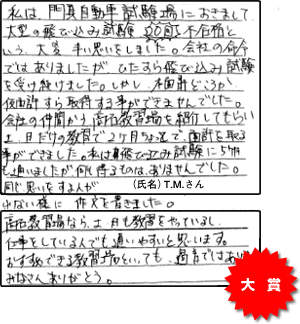 私は、明真自動車試験場におきまして
大型の飛び込み試験 20回不合格と
いう、大変辛い思いをしました。会社の命令
ではありましたが、ひたすら飛び込み試験
を受け続けました。しかし、本面許どころか
仮面許すら取得する事ができませんでした。
会社の仲間から 教習場を紹介してもらい
土、日だけの教習で2ヶ月ちょっとで、面許を取る
事ができました。私は飛び込み試験に
も通いましたが何も得るものは、ありませんでした。
同じ思いをする人が (氏名) T.M.さん
出ない様に 作文を書きました。
教習場なら、土、日も教習をやっているし、
仕事をしている人でも通いやすいと思います。
おすすめできる教習場といっても、過言ではあり
みなさんありがとう。
大賞